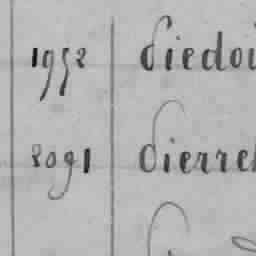 1952 Piedoi
2091 Pierrel